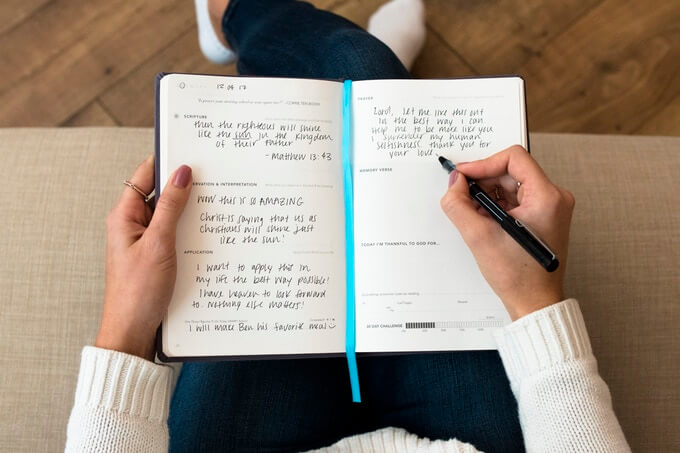 12 04 17
SCRIPTURE
then the righteous will shine
like the sun in the kingdom
of their Father
- Matthew 13:43
OBSERVATION & INTERPRETATION
Wow this is so AMAZING
Christ is saying that us as
Christians will shine just
like the sun!
APPLICATION
I want to apply this in
my life the best way possible!
I have heaven to look forward
to.. nothing else matters!
I will make Ben his favorite meal
PRAYER
Lord, let me live this out
in the best way I can
Help me to be more like you
I surrender my human
selfishness. thank you for
your love.
MEMORY VERSE
TODAY I'M THANKFUL TO GOD FOR...
90 DAY CHALLENGE